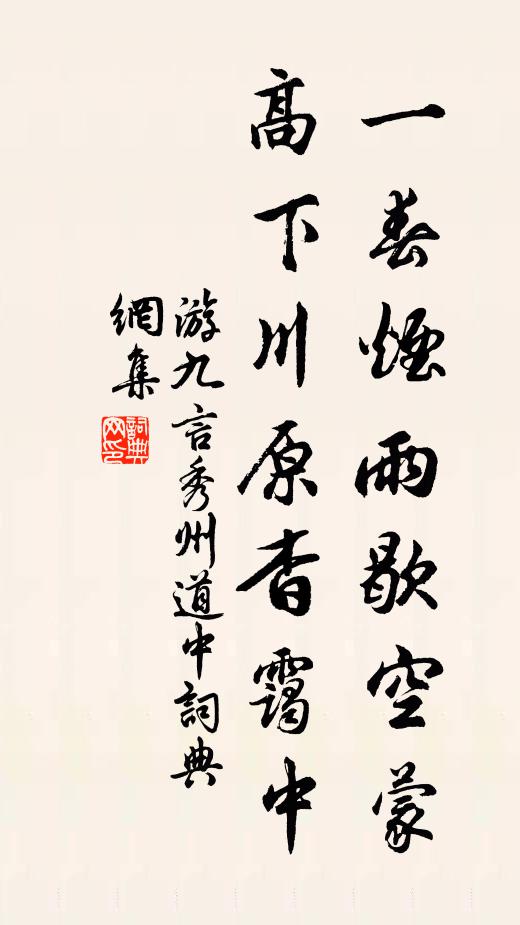 一春煙雨歇空蒙
高下川原杳靄中
游九言秀州道中詞典
網集
詞典
网印